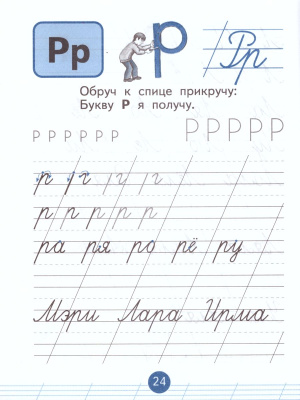 Рр р Рр
Обруч к спице прикручу:
Букву Р я получу.
Р Р Р Р Р Р Р Р Р Р Р
р р р р р
ра ря ро рё ру
Мэри Лара Ирма
24